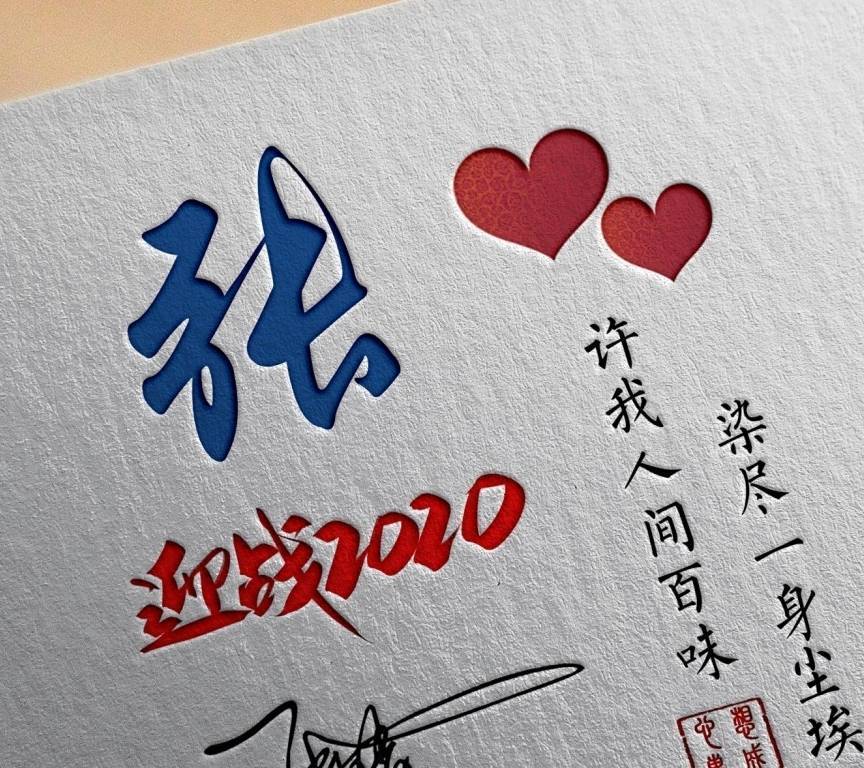 张
迎战2020
染尽一身尘埃
许我人间百味